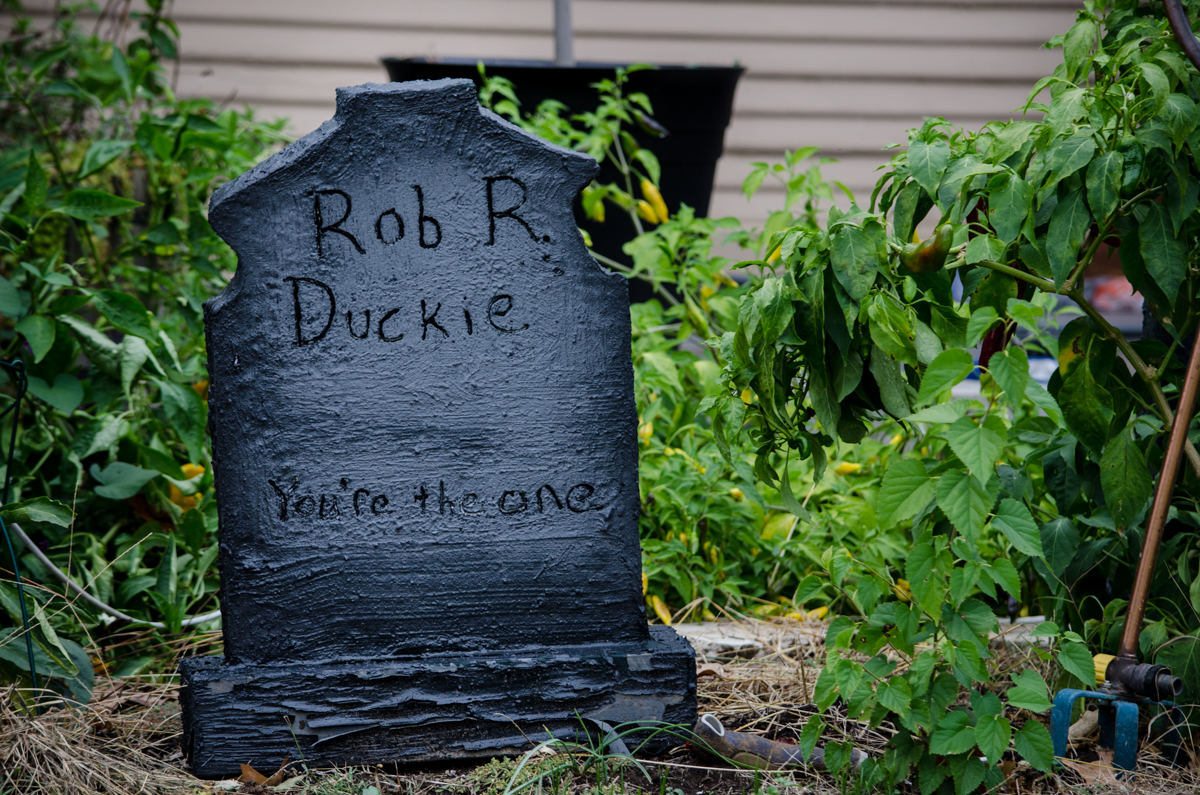 Rob R.
Duckie
You're the one